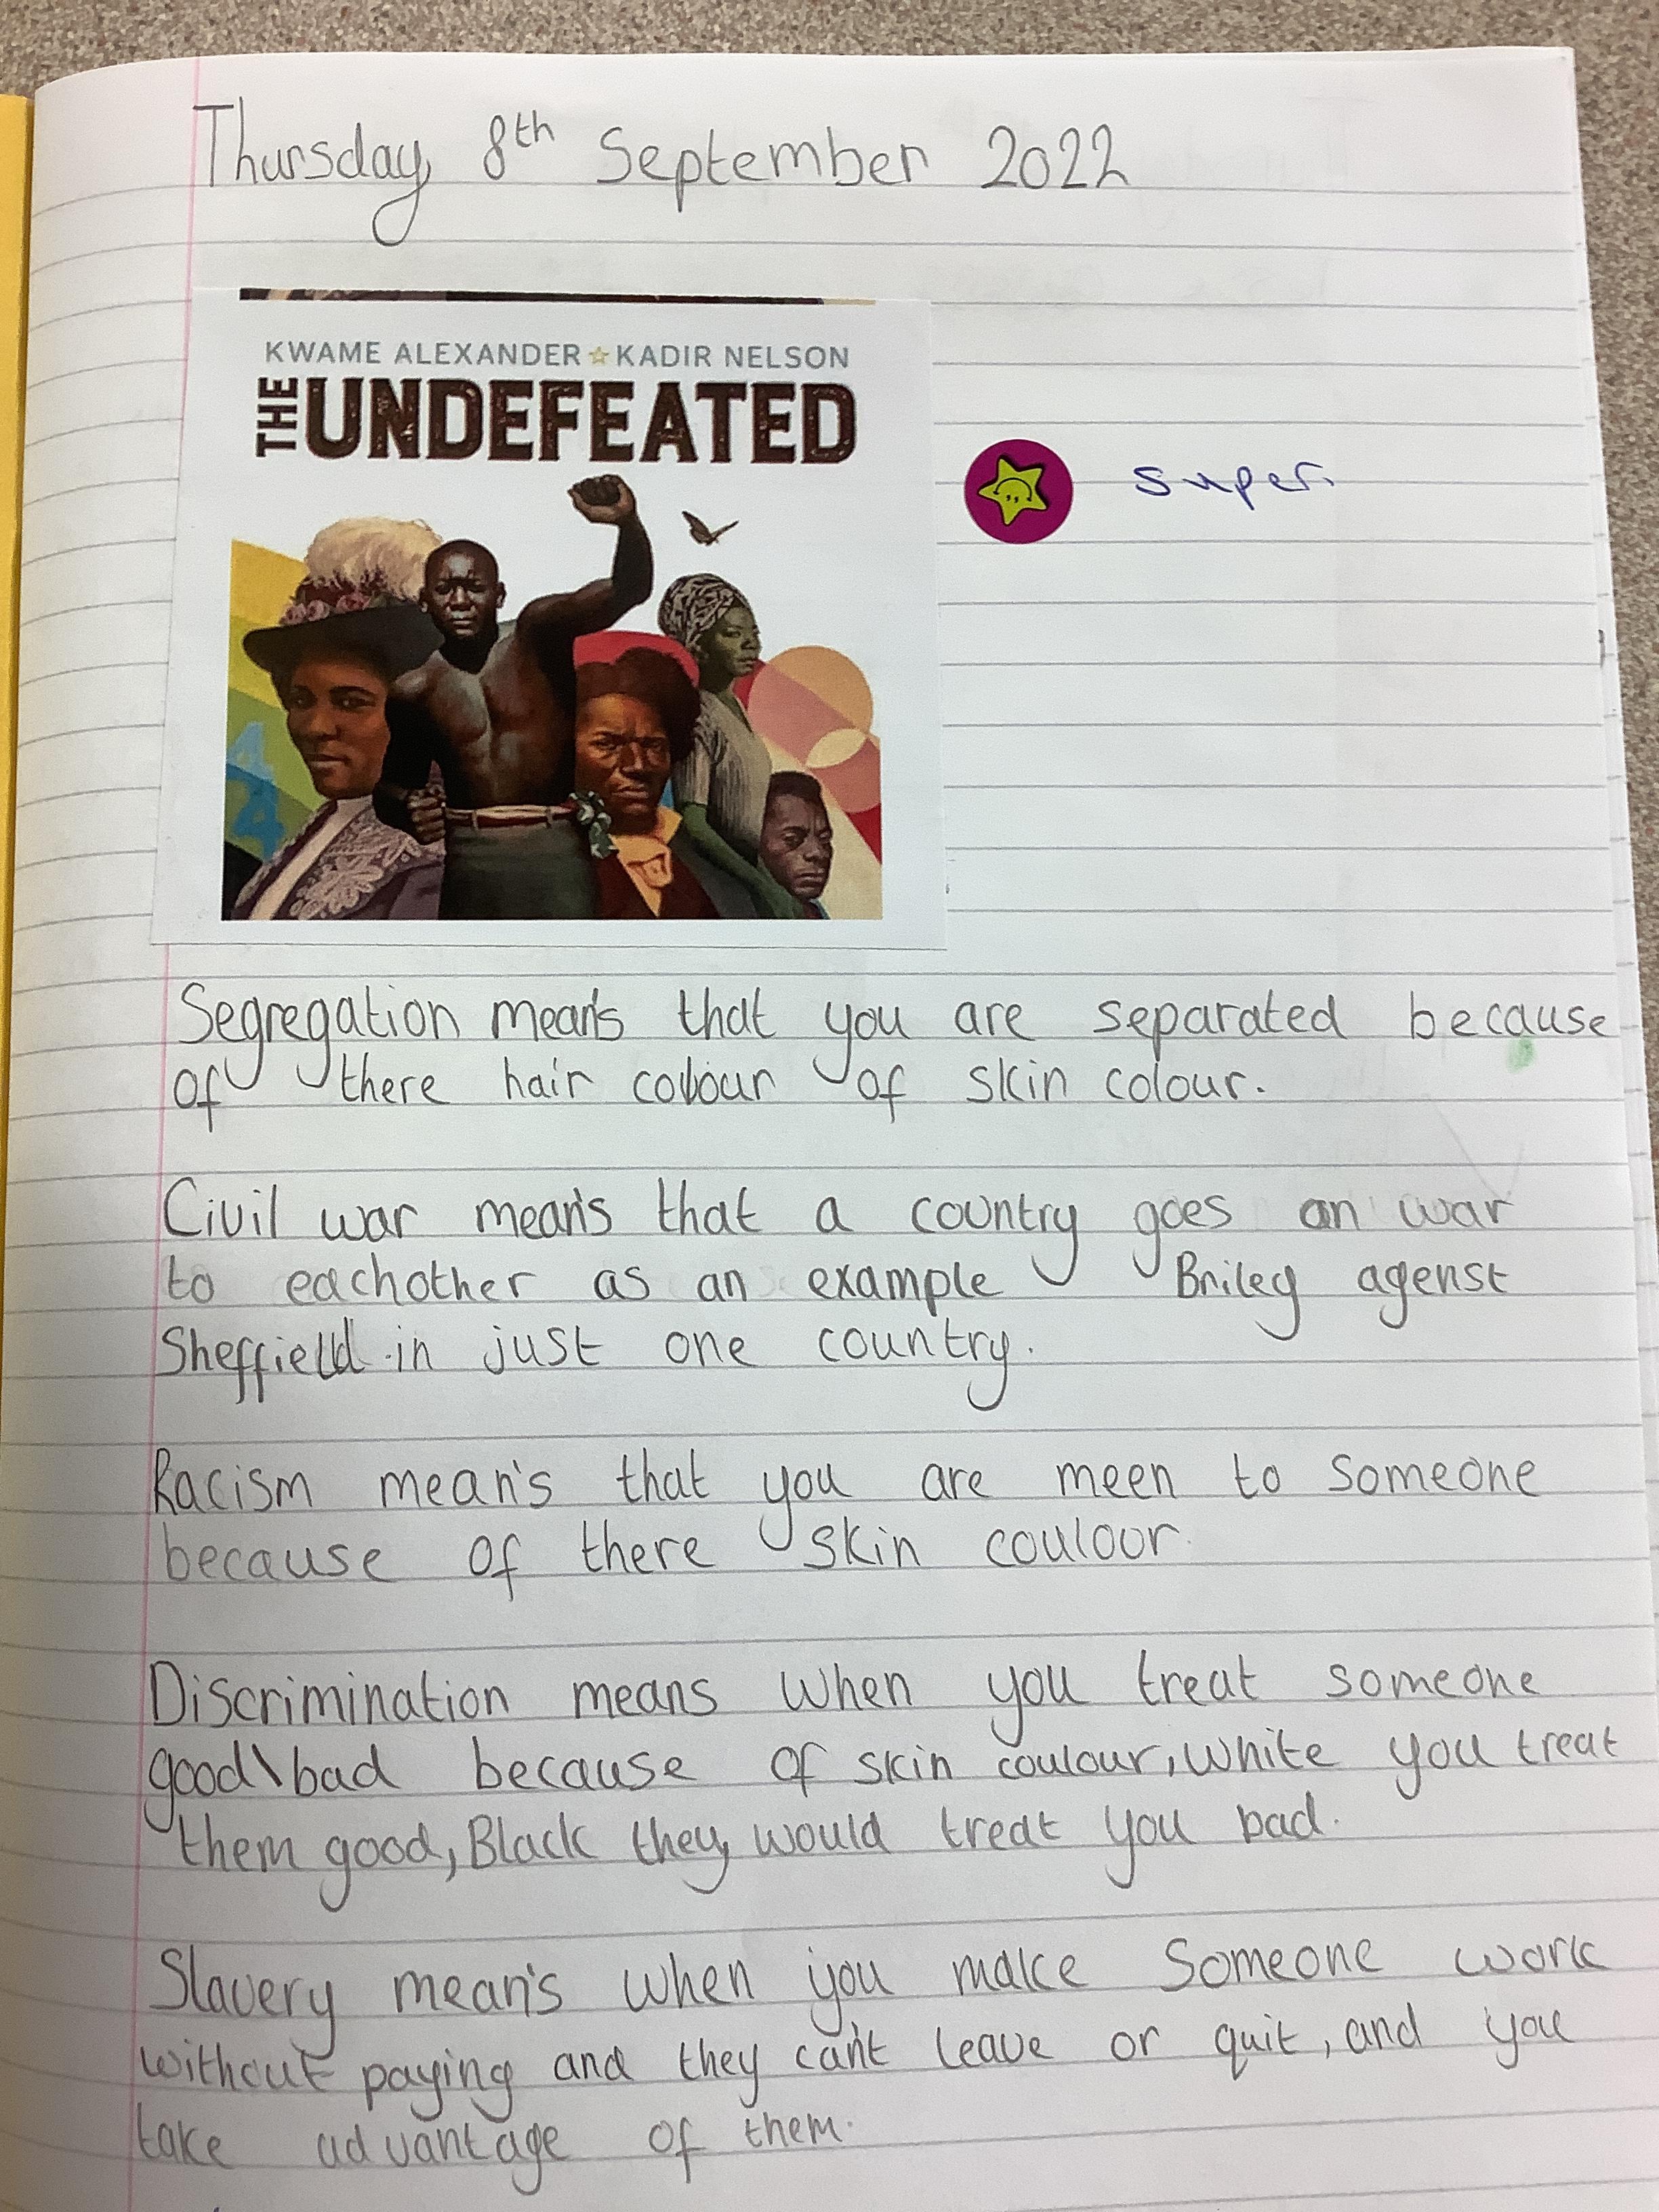 Thursday 8th September 2022
KWAME ALEXANDER ☆ KADIR NELSON
THE UNDEFEATED
super.
Segregation mean's that you are separated because
of there hair colour of skin colour.
Civil war mean's that a country goes on war
to eachother as an example Briley agenst
Sheffield in just one country.
Racism mean's that you are meen to someone
because of there skin couloor.
Discrimination means when you treat someone
good\bad because of skin coulour, White you treat
them good, Black they would treat you bad.
Slavery mean's when you make someone work
without paying and they can't leave or quit, and you
take advantage of them.